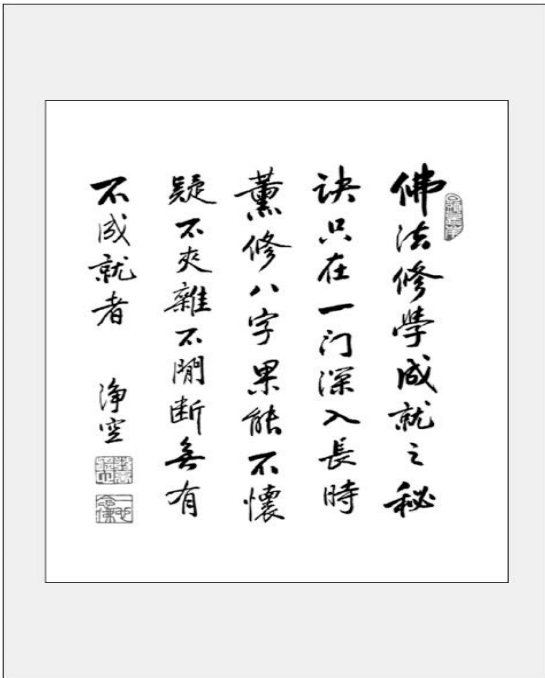 佛法修學成就之秘
诀只在一门深入長時
薰修八字果能不懷
疑不夾雜不間断無有
不成就者
淨空